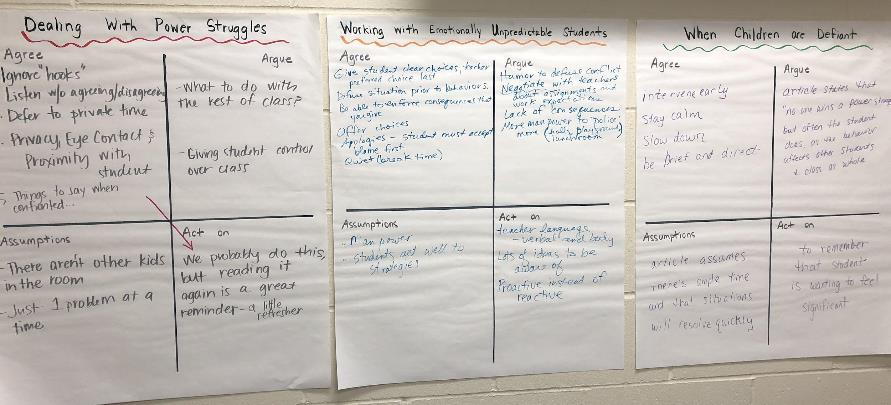 Dealing With Power Struggles
Agree
Ignore "hooks"
Listen w/o agreeing/disagreeing
- Defer to private time
- Privacy, Eye Contact &
Proximity with
student
Things to say when
confronted...
Argue
- What to do with
the rest of class?
- Giving student control
over class
Assumptions
- There aren't other kids
in the room
- Just 1 problem at a
time
Act on
We probably do this,
but reading it
again is a great
reminder - a little
refresher
Working with Emotionally Unpredictable Students
Agree
Give student clear choices, teacher
preferred choice last
Defuse situation prior to behaviors.
Be able to enforce consequences that
you give
Offer choices
Apologies - student must accept
blame first.
Quiet (break time)
Argue
Humor to defuse conflict
Negotiate with teachers
about assignments and
work expectations
Lack of consequences
More man power to police
more (halls, playground,
lunchroom)
Assumptions
- Man power
- Students act well to
strategies
Act on
teacher language
- verbal and body
Lots of ideas to be
aware of
Proactive instead of
reactive
When Children are Defiant
Agree
intervene early
stay calm
slow down
be brief and direct
Argue
article states that
"no one wins a power struggle
but often the student
does, as the behavior
affects other students
& class as whole
Assumptions
article assumes
there's ample time
and that situations
will resolve quickly
Act on
to remember
that student
is wanting to feel
significant